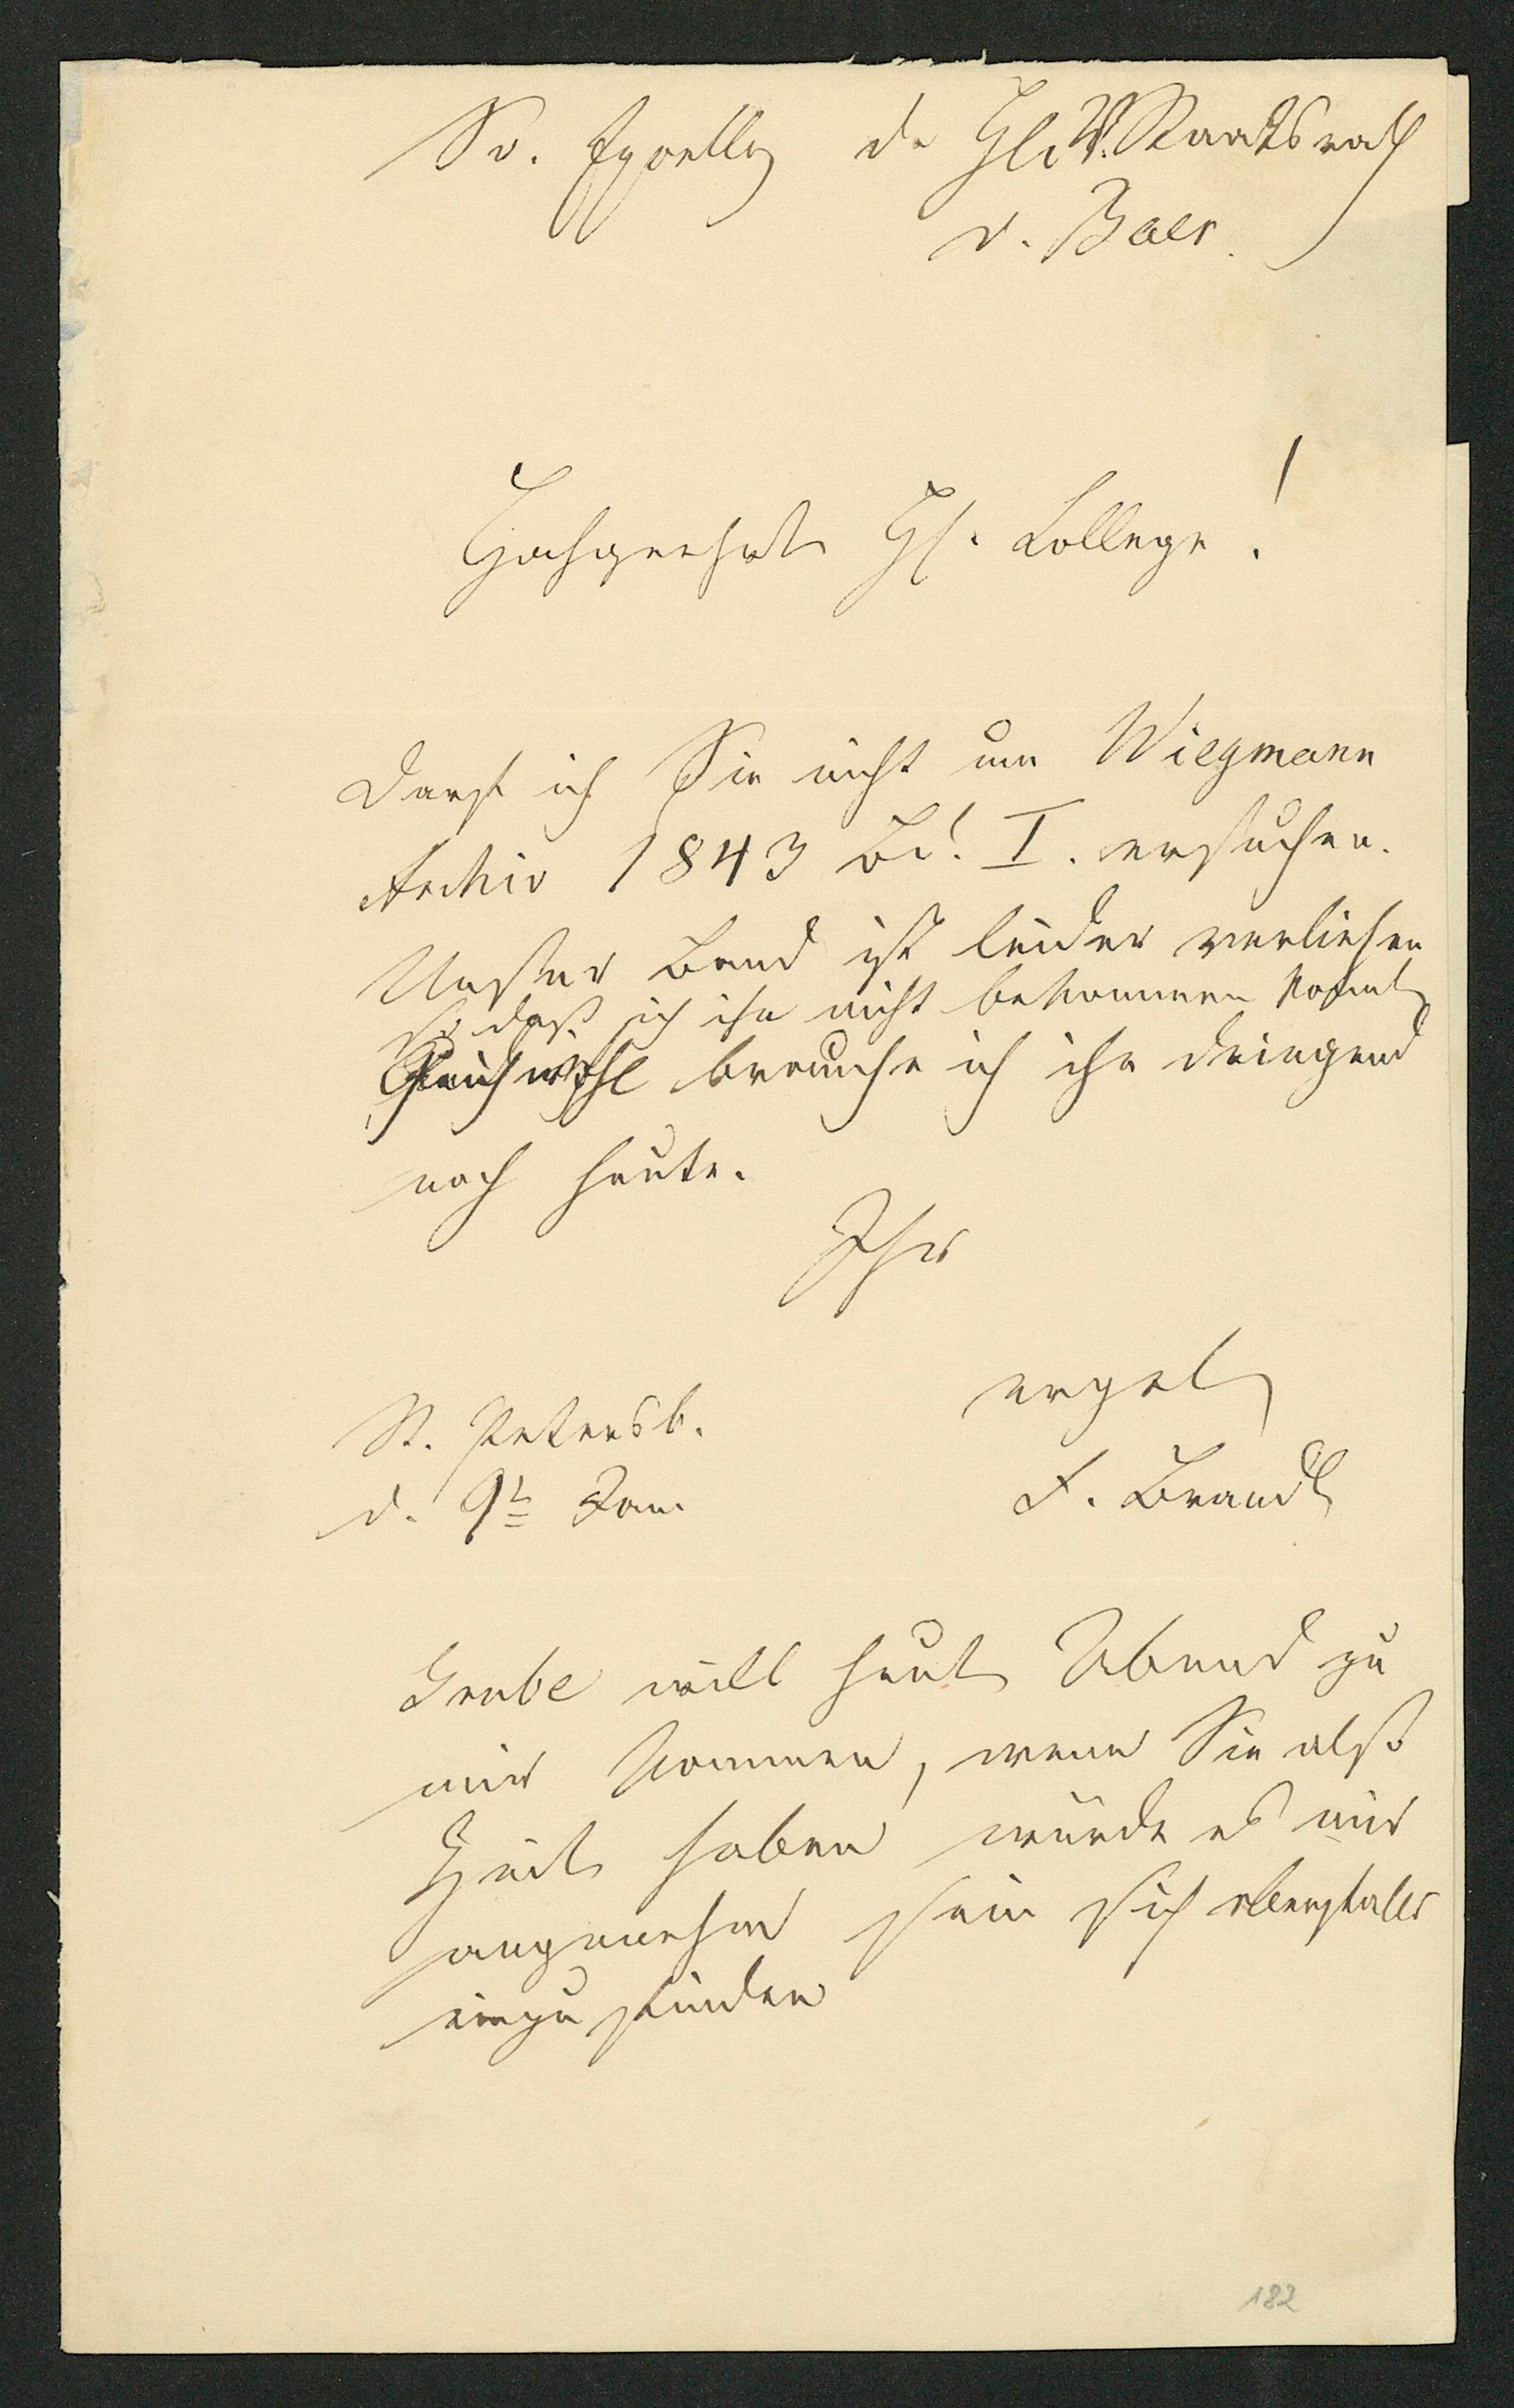 Sr. Excellz d. H. W. Staatsrath
v. Baer.
Hochgeehrter Hr. College!
Darf ich Sie nicht um Wiegmann
Archiv 1843 Bd. I. ersuchen.
Unser Band ist leider verliehen
so daß ich ihn nicht bekommen konnte
Gleichwohl brauche ich ihn dringend
noch heute.
Ihr
ergebn
St. Petersb.
F. Brandt
d. 9t Jan.
Grube will heute Abend zu
mir kommen, wenn Sie also
Zeit haben würde es mir
angenehm sein sich ebenfalls
einzufinden
182